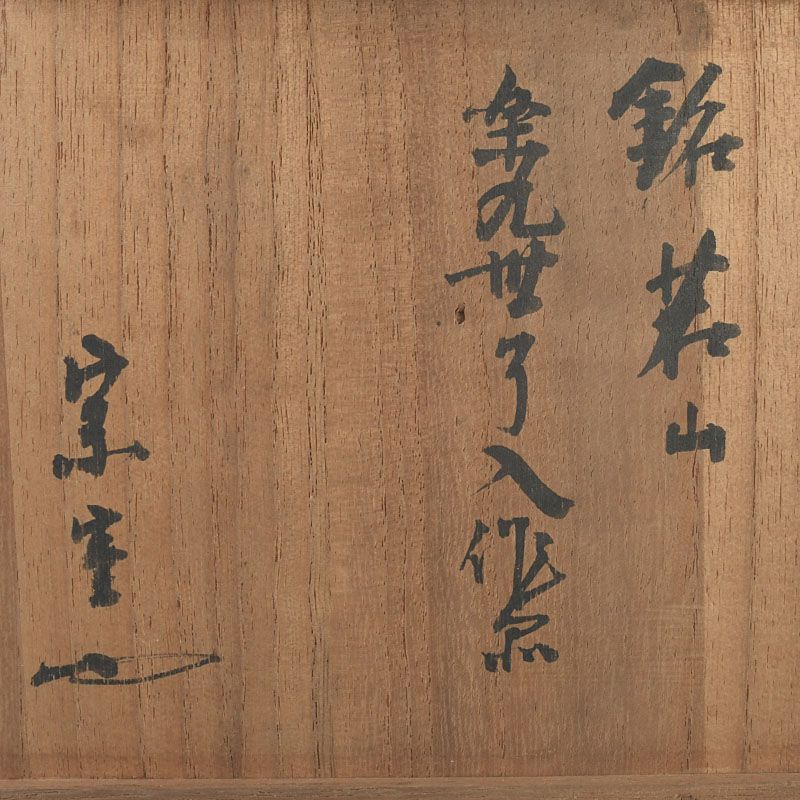 銘 若山
楽九世了入作
宗室